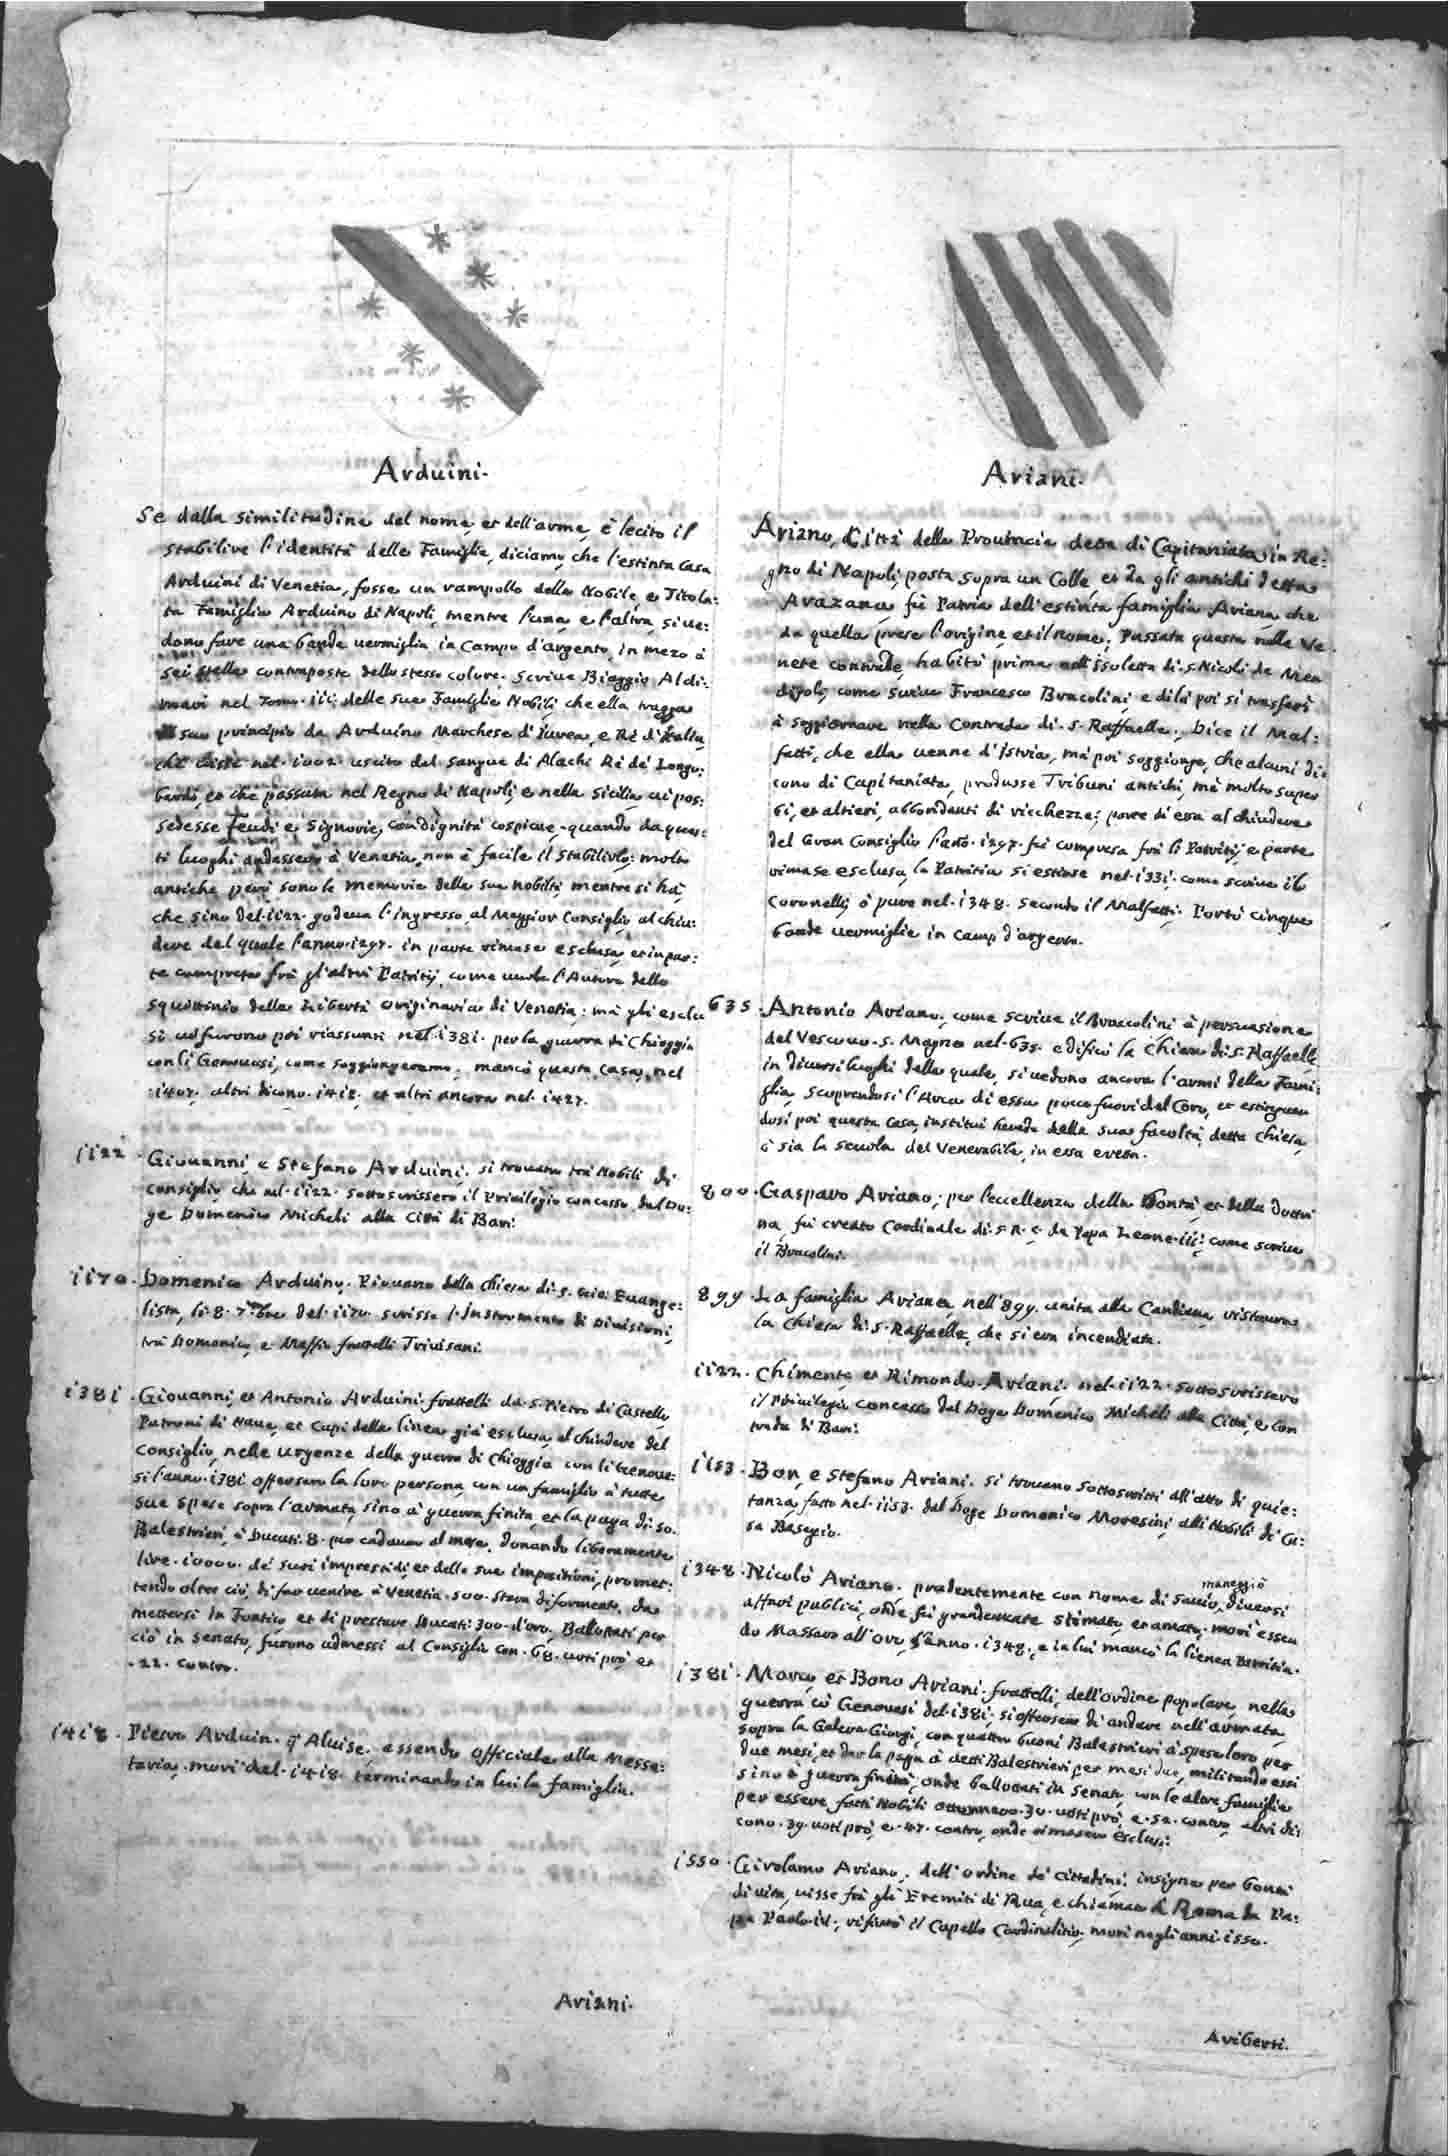 Arduini.
Se dalla similitudine del nome, et dell'arme, è lecito il
stabilire l'identità delle Famiglie, diciamo, che l'estinta Casa
Arduini di Venetia, fosse un rampollo della Nobile e Titola:
ta Famiglia Arduino di Napoli, mentre l'una, e l'altra, si ue:
dono fare una banda uermiglia in Campo d'argento, in mezo à
sei stelle contraposte dello stesso colore. Scriue Biaggio Aldi:
mari nel Tomo. iii. delle sue Famiglie Nobili, che ella tragga
il suo principio da Arduino Marchese d'Iurea, e Rè d'Italia,
che nel. i002. uscito dal sangue di Alachi Rè de Longo:
bardi, et che passata nel Regno di Napoli, e nella Sicilia, ui pos:
sedesse Feudi e Signorie, con dignità cospicue. quando da ques:
ti luoghi andassero à Venetia, non è facile il stabilirlo: molto
antiche però sono le memorie della sua nobiltà mentre si hà,
che sino del. ii22. godeua l'ingresso, al Maggior Consiglio, al chiu:
dere del quale l'anno. i297. in parte rimase esclusa, et in par:
te compresa frà gl'altri Patritij, come uuole l'Autore dello
squittinio della Libertà originaria di Venetia: mà gli esclu
si ui furono poi riassunti nel. i38i. per la guerra di Chioggia
con li Genouesi, come soggiongeremo. mancò questa Casa, nel
.i407. altri dicono. i4i8. et altri ancora nel. i427.
ii22. Giouanni, e Stefano Arduini. si trouano trà Nobili di
Consiglio, che nel. ii22. sottoscrissero il Priuilegio concesso dal Do:
ge Domenico Micheli alla Città di Bari.
ii70. Domenico Arduino. Piouano della Chiesa di. S. Gio: Euange:
lista, li. 8. 7mbre del. ii70. scrisse l'Instrumento di Diuisioni,
trà Domenico, e Maffio fratelli Triuisani.
i38i. Giouanni, et Antonio Arduini. fratelli da. S. Pietro di Castello,
Patroni di Naue, et Capi della linea già esclusa, al chiudere del
Consiglio, nelle urgenze della guerra di Chioggia con li Genoue:
si l'anno. i38i. offersero la loro persona con un famiglio à tutte
sue spese sopra l'armata, sino à guerra finita, et la paga di. 50.
Balestrieri, à Ducati. 8. per cadauno al mese. donando liberamente
lire. i0000. de suoi imprestidi, et delle sue imposizioni, promet:
tendo oltre ciò, di far uenire à Venetia. 500. stara di formento, da
mettersi in Fontico et di prestare Ducati. 300. d'oro. Ballottati per
ciò in Senato, furono admessi al Consiglio con. 68. uoti prò, et
.22. contro.
i4i8. Pietro Arduin. q. Aluise. essendo officiale alla Messe:
taria. morì del. i4i8. terminando in lui la famiglia.
Ariani.
Ariani.
Ariano, Città della Prouincia detta di Capitaniata, in Re:
gno di Napoli, posta sopra un Colle et da gli antichi detta
Arazana, fù Patria dell'estinta famiglia Ariana che
da quella prese l'origine, et il nome. Passata questa nelle Ve
nete contrade, habitò prima nell'Isoletta di. S. Nicolò de Men
digoli, come scriue Francesco Bracolini, e di là poi si trasferì
à soggiornare nella Contrada di. S. Raffaelle. Dice il Mal:
fatti, che ella uenne d'Istria, mà poi soggionge, che alcuni di:
cono di Capitaniata, produsse Tribuni antichi, mà molto super
bi, et altieri, abbondanti di ricchezze; parte di essa al chiudere
del Gran Consiglio l'año. i297. fù compresa frà li Patritij, e parte
rimase esclusa, la Patritia si estinse nel. i33i. come scriue il
Coronelli, ò pure nel. i348. secondo il Malfatti. Portò cinque
bande uermiglie in camp d'argento.
635. Antonio Ariano. come scriue il Braccolini à persuasione
del Vescouo. S. Magno nel. 635. edificò la Chiesa di. S. Raffaelle
in diuersi luoghi della quale, si uedono ancora l'armi della Fami:
glia, scoprendosi l'Arca di essa poco fuori del Coro, et estinguen
dosi poi questa Casa, instituì herede della sua facoltà, detta Chiesa,
ò sia la Scuola del Venerabile, in essa eretta.
800. Gasparo Ariano. per l'eccellenza della Bontà, et della dottri
na, fù creato Cardinale di. S. R. C. da Papa Leone. iii. come scriue
il Bracolini.
899. La famiglia Ariana, nell'899. unita alla Candiana, ristaurò
la Chiesa di. S. Raffaelle, che si era incendiata.
ii22. Chimente, et Rimondo Ariani. nel. ii22. sottoscrissero
il Priuilegio concesso dal Doge Domenico Micheli alla Città, e Con
trada di Bari.
ii53. Bon, e Stefano Ariani. si trouano sottoscritti all'atto di quie:
tanza, fatto nel. ii53. dal Doge Domenico Moresini, alli Nobili di Ca:
sa Basegio.
i348. Nicolò Ariano. prudentemente con nome di Sauio, maneggiò diuersi
affari publici, onde fù grandemente stimato, et amato. morì essen
do Massaro all'oro, l'anno. i348. e in lui mancò la linea Patritia.
i38i. Marco, et Bono Ariani. fratelli, dell'ordine popolare, nella
guerra cò Genouesi del. i38i. si offersero di andare nell'armata,
sopra la Galera Giorgi, con quattro buoni Balestrieri à spese loro per
due mesi, et dar la paga à detti Balestrieri, per mesi due, militando essi
sino à guerra finita, onde ballottati in Senato, con le altre famiglie
per essere fatti Nobili ottennero. 30. uoti prò, e. 52. contro, altri di:
cono. 39. uoti prò, e. 47. contro, onde rimasero esclusi.
i550. Girolamo Ariano. dell'ordine de Cittadini. insigne per bontà
di uita, uisse frà gli Eremiti di Rua, e chiamato à Roma da Pa:
pa Paolo. iv., rifiutò il Capello Cardinalitio, morì negli anni. i550.
Ariberti.